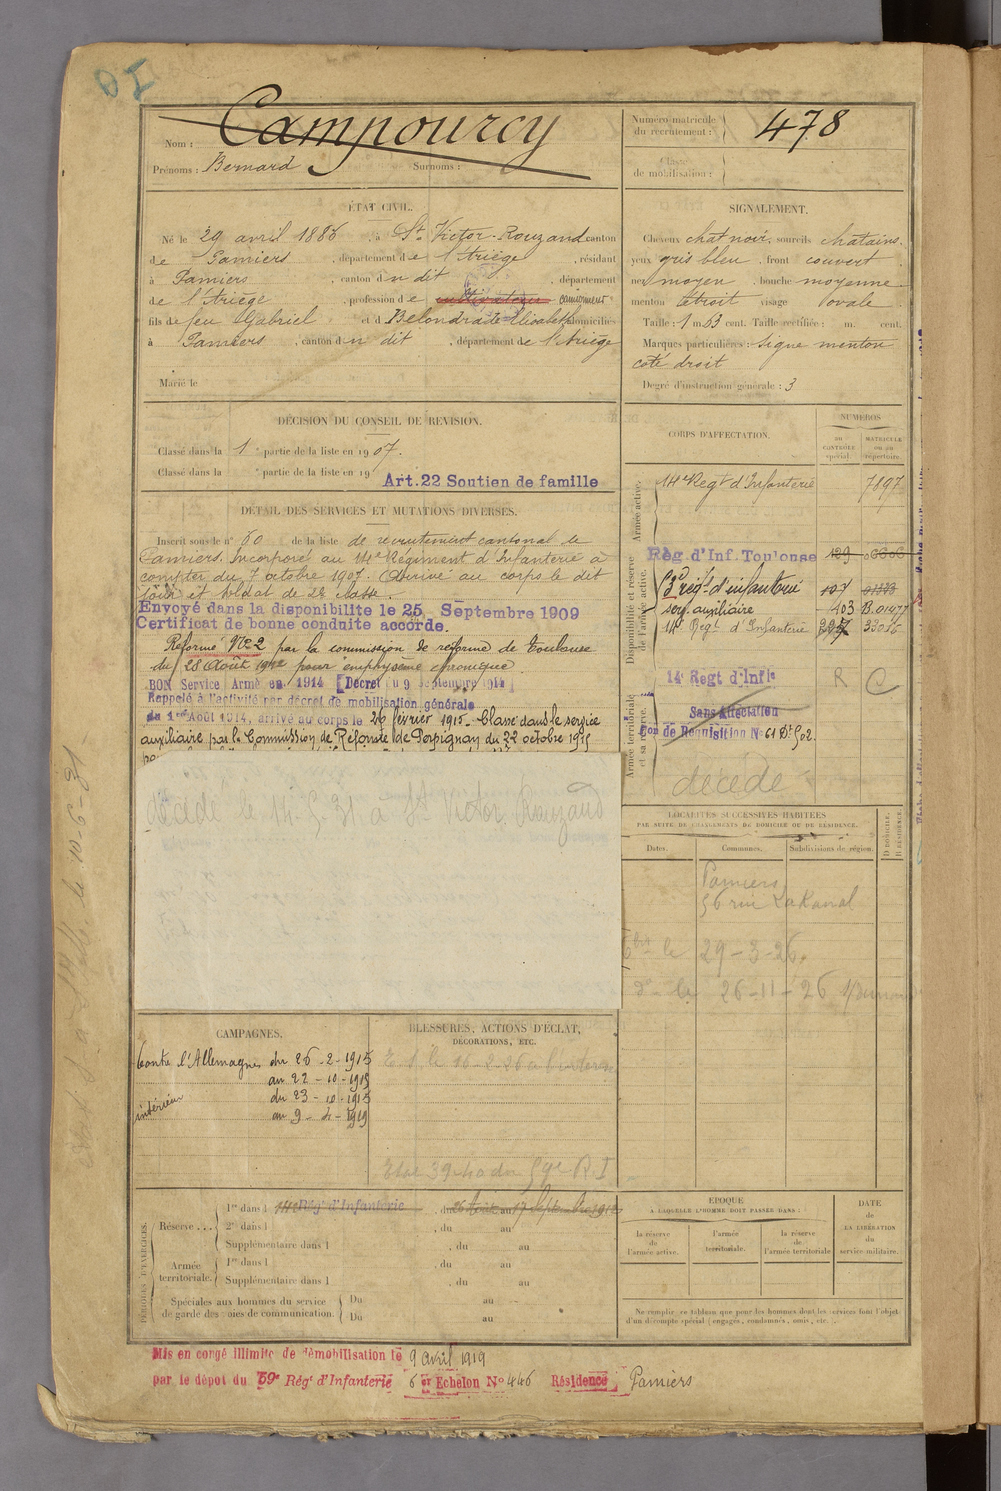 Nom : Campourcy
Prénoms : Bernard Surnoms :
Numéro matricule du recrutement : 478
Classe de mobilisation :
ÉTAT CIVIL.
Né le 29 avril 1886, à St Victor-Rouzaud canton
de Pamiers, département de l'Ariège, résidant
à Pamiers, canton du dit, département
de l'Ariège, profession de cultivateur camionneur
fils de feu Gabriel et d Belondrade Elisabeth domiciliés
à Pamiers, canton du dit, département de l'Ariège
Marié le
SIGNALEMENT.
Cheveux chat noir, sourcils chatains.
yeux gris bleu, front couvert
nez moyen, bouche moyenne
menton étroit visage ovale
Taille : 1 m 63 cent. Taille rectifiée : m. cent.
Marques particulières : Signe menton
coté droit
Degré d'instruction générale : 3
DÉCISION DU CONSEIL DE RÉVISION.
Classé dans la 1 partie de la liste en 1907.
Classé dans la partie de la liste en 19
Art. 22 Soutien de famille
DÉTAIL DES SERVICES ET MUTATIONS DIVERSES.
Inscrit sous le n° 60 de la liste de recrutement cantonal de
Pamiers. Incorporé au 14e Régiment d'Infanterie à
compter du 7 octobre 1907. Arrivé au corps le dit
jour et soldat de 2e classe.
Envoyé dans la disponibilité le 25 Septembre 1909
Certificat de bonne conduite accordé.
Réformé N° 2 par la commission de réforme de Toulouse
du 28 Août 1912 pour emphysème chronique
BON Service Armé en 1914 [Décret du 9 Septembre 1914]
Rappelé à l'activité par décret de mobilisation générale
du 1er Août 1914, arrivé au corps le 26 février 1915. Classé dans le service
auxiliaire par la Commission de Réforme de Perpignan du 22 octobre 1915
décéd le 14. 5. 31 à St Victor Rouzaud
CORPS D'AFFECTATION.
NUMÉROS
AU CONTRÔLE spécial.
MATRICULE ou au répertoire.
Armée active.
14e Regt d'Infanterie 7897
Disponibilité et réserve de l'armée active.
Rég. d'Inf. Toulouse 129
53e régt d'infanterie 107
serv. auxiliaire 103
14e Regt d'Infanterie
Armée territoriale et sa réserve.
14e Regt d'Infie R C
Sans Affectation
Con de Réquisition N°
décédé
LOCALITÉS SUCCESSIVES HABITÉES
PAR SUITE DE CHANGEMENTS DE DOMICILE OU DE RÉSIDENCE.
Dates. Communes. Subdivisions de région. D DOMICILE. R RÉSIDENCE.
Pamiers
56 rue Lakanal
le 29-3-26.
26-11-26
CAMPAGNES.
Contre l'Allemagne du 26-2-1915
au 22-10-1915
intérieur du 23-10-1915
au 9-4-1919
BLESSURES, ACTIONS D'ÉCLAT,
DÉCORATIONS, ETC.
PÉRIODES D'EXERCICES.
Réserve . . . 1re dans l 14e Rég. d'Infanterie, du 26 Août au 17 Septembre 1912
2e dans l , du au
Supplémentaire dans l , du au
Armée territoriale. 1re dans l , du au
Supplémentaire dans l , du au
Spéciales aux hommes du service de garde des voies de communication. Du au
Du au
ÉPOQUE
À LAQUELLE L'HOMME DOIT PASSER DANS :
la réserve de l'armée active.
l'armée territoriale.
la réserve de l'armée territoriale
DATE DE LA LIBÉRATION du service militaire.
Ne remplir ce tableau que pour les hommes dont les services font l'objet
d'un décompte spécial (engagés, condamnés, omis, etc.).
Mis en congé illimité de démobilisation le 9 avril 1919
par le dépôt du 59e Régt d'Infanterie 6e Echelon N° 446 Résidence Pamiers